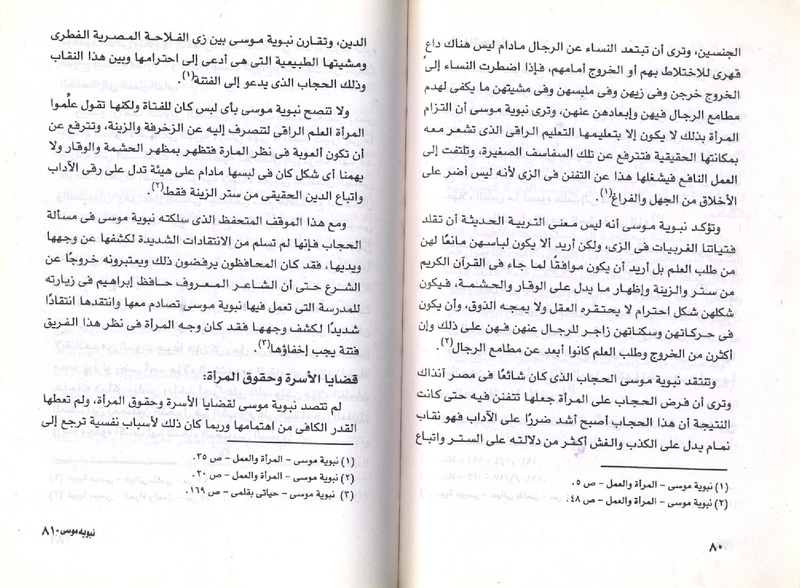 الجنسين، وترى أن تبتعد النساء عن الرجال مادام ليس هناك داع
قهرى للاختلاط بهم أو الخروج أمامهم، فإذا اضطرت النساء إلى
الخروج خرجن وفى زيهن وفى ملبسهن وفى مشيتهن ما يكفى لهدم
مطامع الرجال فيهن وإبعادهن عنهن، وترى نبوية موسى أن التزام
المرأة بذلك لا يكون إلا بتعليمها التعليم الراقى الذى تشعر معه
بمكانتها الحقيقية فتترفع عن تلك السفاسف الصغيرة، وتلتفت إلى
العمل النافع فيشغلها هذا عن التفنن فى الزى لأنه ليس أضر على
الأخلاق من الجهل والفراغ(١).
وتؤكد نبوية موسى أنه ليس معنى التربية الحديثة أن تقلد
فتياتنا الغربيات فى الزى، ولكن أريد ألا يكون لباسهن مانعًا لهن
من طلب العلم بل أريد أن يكون موافقًا لما جاء فى القرآن الكريم
من ستر والزينة وإظهار ما يدل على الوقار والحشمة، فيكون
شكلهن شكل احترام لا يحتقره العقل ولا يمجه الذوق، وأن يكون
فى حركاتهن وسكناتهن زاجر للرجال عنهن فهن على ذلك وإن
أكثرن من الخروج وطلب العلم كانوا أبعد عن مطامع الرجال(٢).
وتنتقد نبوية موسى الحجاب الذى كان شائعًا فى مصر آنذاك
وترى أن فرض الحجاب على المرأة جعلها تتفنن فيه حتى كانت
النتيجة أن هذا الحجاب أصبح أشد ضررًا على الآداب فهو نقاب
نمام يدل على الكذب والغش أكثر من دلالته على الستر واتباع
(١) نبوية موسى - المرأة والعمل - ص ٥.
(٢) نبوية موسى - المرأة والعمل - ص ٤٨.
٨٠
الدين، وتقارن نبوية موسى بين زى الفلاحة المصرية الفطرى
ومشيتها الطبيعية التى هى أدعى إلى احترامها وبين هذا النقاب
وذلك الحجاب الذى يدعو إلى الفتنة(١).
ولا تنصح نبوية موسى بأى لبس كان للفتاة ولكنها تقول علِّموا
المرأة العلم الراقى لتنصرف إليه عن الزخرفة والزينة، وتترفع عن
أن تكون ألعوبة فى نظر المارة فتظهر بمظهر الحشمة والوقار ولا
يهمنا أى شكل كان فى لبسها مادام على هيئة تدل على رقى الآداب
واتباع الدين الحقيقى من ستر الزينة فقط(٢).
ومع هذا الموقف المتحفظ الذى سلكته نبوية موسى فى مسألة
الحجاب فإنها لم تسلم من الانتقادات الشديدة لكشفها عن وجهها
ويديها، فقد كان المحافظون يرفضون ذلك ويعتبرونه خروجًا عن
الشرع حتى أن الشاعر المعروف حافظ إبراهيم فى زيارته
للمدرسة التى تعمل فيها نبوية موسى تصادم معها وانتقدها انتقادًا
شديدًا لكشف وجهها فقد كان وجه المرأة فى نظر هذا الفريق
فتنة يجب إخفاؤها(٣).
قضايا الأسرة وحقوق المرأة:
لم تتصد نبوية موسى لقضايا الأسرة وحقوق المرأة، ولم تعطها
القدر الكافى من اهتمامها وربما كان ذلك لأسباب نفسية ترجع إلى
(١) نبوية موسى - المرأة والعمل - ص ٣٥.
(٢) نبوية موسى - المرأة والعمل - ص ٢٠.
(٣) نبوية موسى - حياتى بقلمى - ص ١٦٩.
نبويه موسى ٨١٠